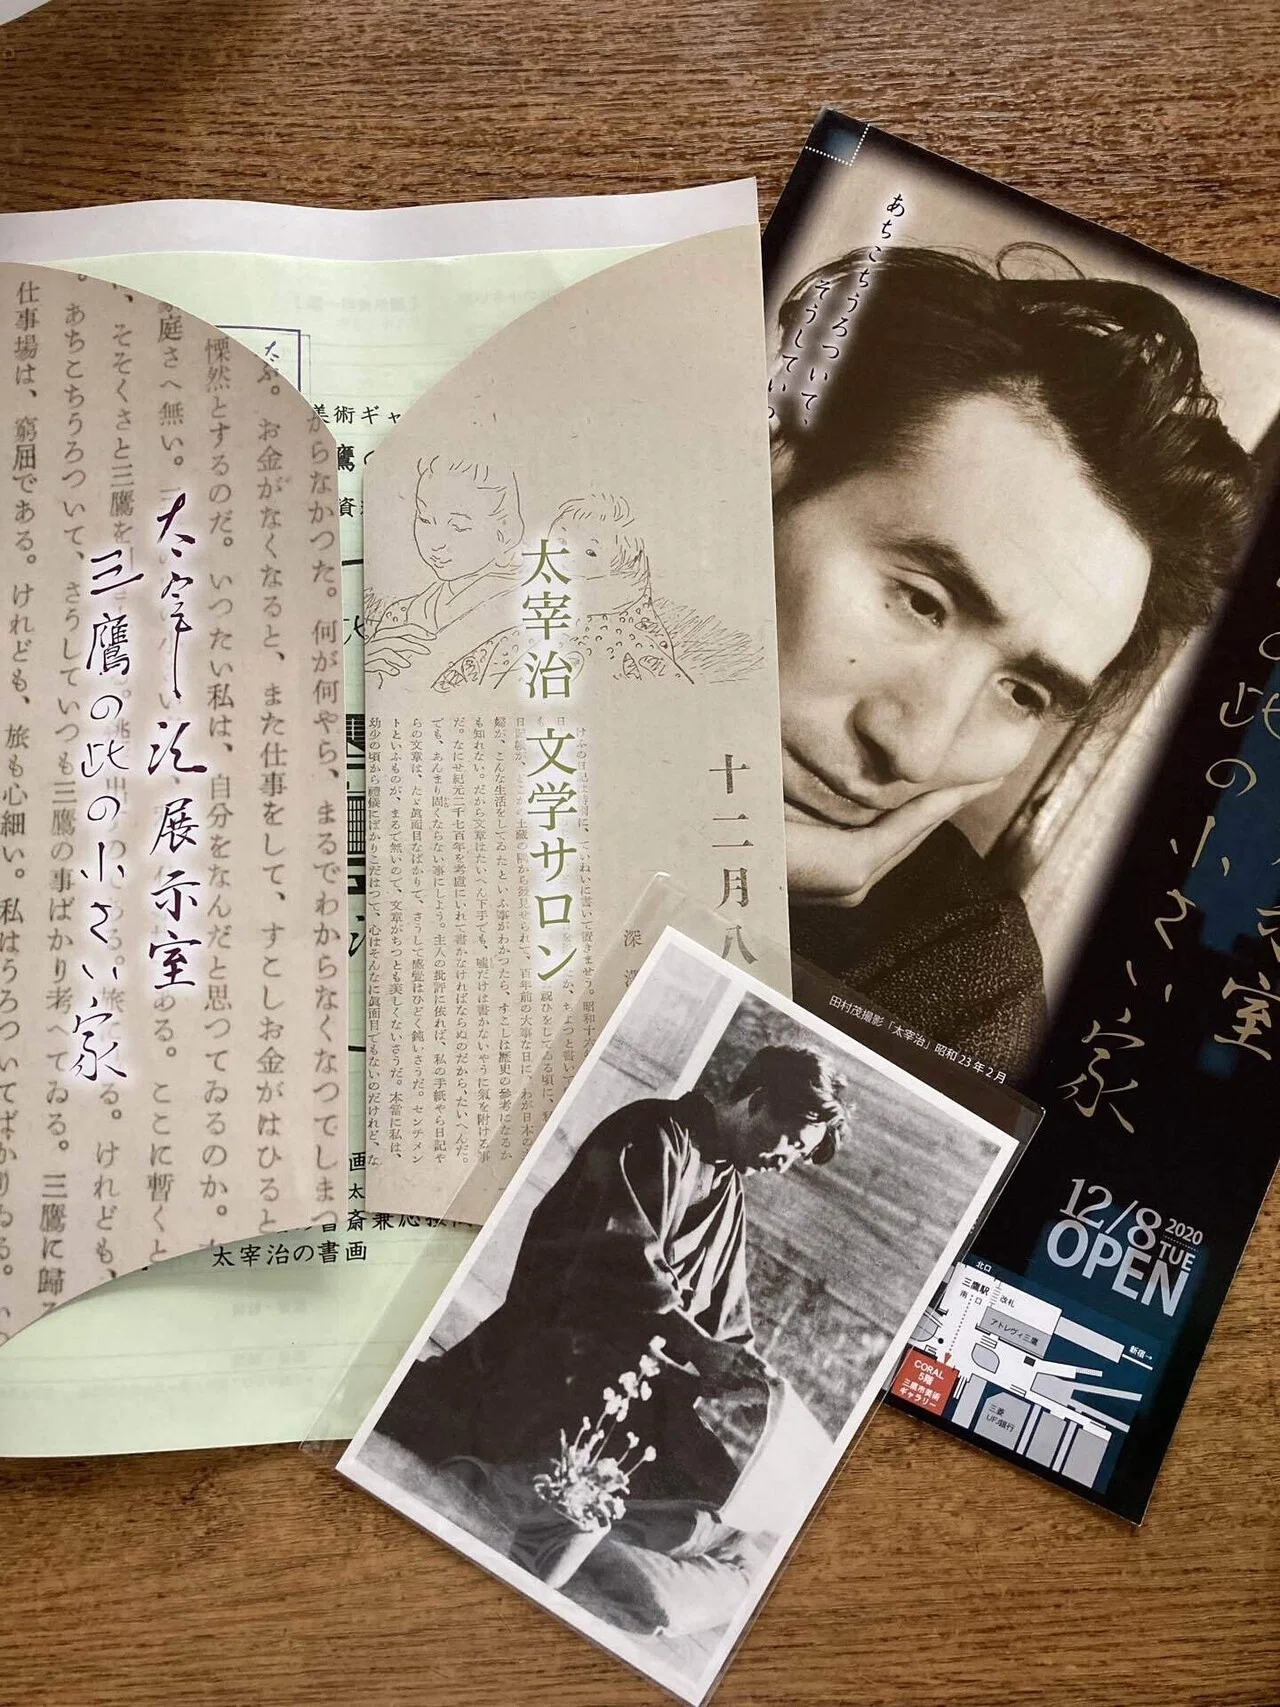 太宰治展示室
三鷹の此の小さい家
仕事場は、窮屈である。けれども、旅も心細い。私はうろついてばかりゐる。い
。あちこちうろついて、さうしていつも三鷹の事ばかり考へてゐる。三鷹に帰る
、そそくさと三鷹を
る。けれども、
家庭さへ無い。
ある。ここに暫くと
慄然とするのだ。いつたい私は、自分をなんだと思つてゐるのか。
ぶ。お金がなくなると、また仕事をして、すこしお金がはひると
からなかつた。何が何やら、まるでわからなくなつてしまつ
美術ギャ
鷹の
資
画
太
書斎兼応接
太宰治の書画
太宰治 文学サロン
十二月八
深
けふの日記は特別に、ていねいに書いて置きませう。昭和十六
婦が、こんな生活をしてゐたといふ事がわかつたら、すこしは歴史の參考になるか
も知れない。だから文章はたいへん下手でも、嘘だけは書かないやうに氣を附ける事
だ。なにせ紀元二千七百年を考慮にいれて書かなければならぬのだから、たいへんだ。
でも、あんまり固くならない事にしよう。主人の批評に依れば、私の手紙やら日記や
らの文章は、たゞ眞面目なばかりで、さうして感覺はひどく鈍いさうだ。センチメン
トといふものが、まるで無いので、文章がちつとも美しくないさうだ。本當に私は、
幼少の頃から禮儀にばかりこだはつて、心はそんなに眞面目でもないのだけれど、な
あちこちうろついて、
そうしていつ
此の小さい家
室
田村茂撮影「太宰治」昭和23年2月
12/8 2020 TUE
OPEN
北口
三鷹駅
南口
改札
アトレヴィ三鷹
新宿→
CORAL
5階
三鷹市美術
ギャラリー
三菱
UFJ銀行